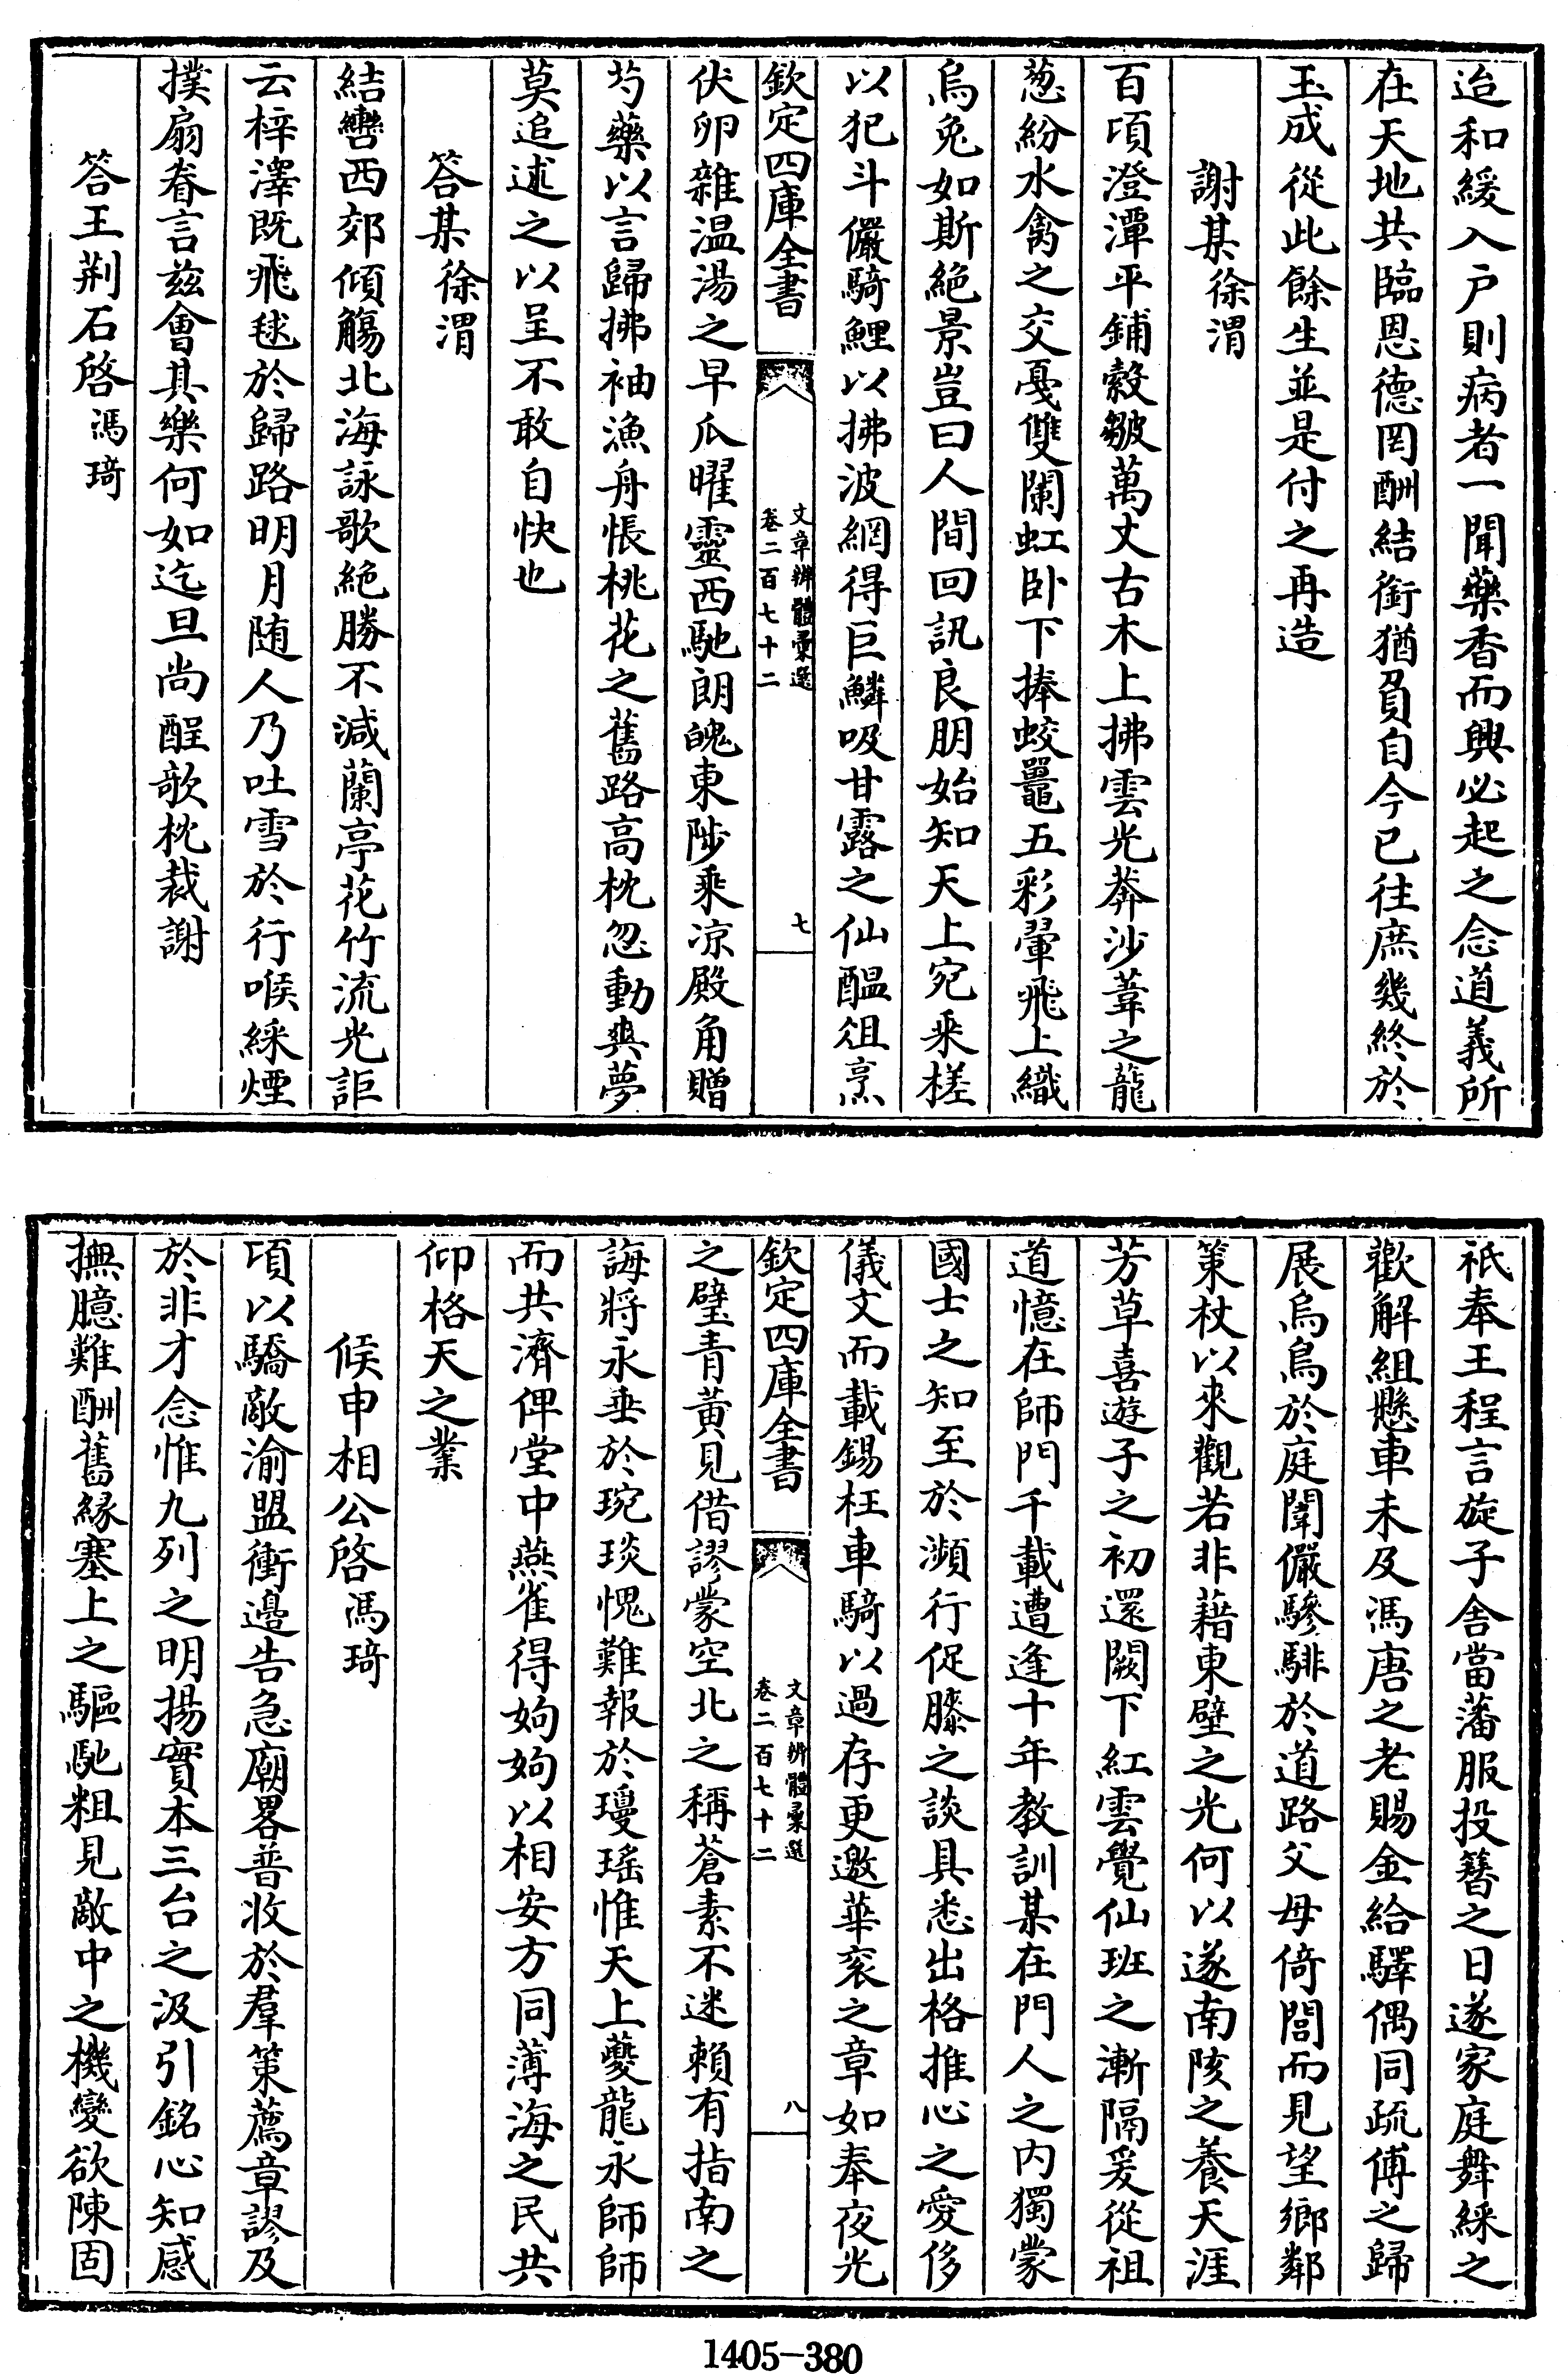 迨和緩入户則病者一聞藥香而興必起之念道義所
在天地共臨恩德罔酬結銜猶負自今已往庶幾終於
玉成從此餘生並是付之再造
謝某徐渭
百頃澄潭平鋪縠皺萬丈古木上拂雲光莽沙葦之蘢
葱紛水禽之交戞雙闌虹卧下捧蛟鼉五彩翬飛上織
烏兔如斯絶景豈曰人間回訊良朋始知天上宛乘槎
以犯斗儼騎鯉以拂波網得巨鱗吸甘露之仙醖俎烹
欽定四庫全書
文章辨體彙選
卷二百七十二
七
伏卵雜温湯之早瓜曜靈西馳朗魄東陟乘凉殿角贈
芍藥以言歸拂袖漁舟悵桃花之舊路高枕忽動爽夢
莫追述之以呈不敢自快也
答某徐渭
結轡西郊傾觴北海詠歌絶勝不減蘭亭花竹流光詎
云梓澤既飛毬於歸路明月随人乃吐雪於行喉綵煙
撲扇眷言兹會其樂何如迄旦尚酲欹枕裁謝
答王荆石啓馮琦
祇奉王程言旋子舍當藩服投簪之日遂家庭舞綵之
歡解組懸車未及馮唐之老賜金給驛偶同疏傅之歸
展烏鳥於庭闈儼驂騑於道路父母倚閭而見望鄉鄰
策杖以來觀若非藉東壁之光何以遂南陔之養天涯
芳草喜遊子之初還闕下紅雲覺仙班之漸隔爰從祖
道憶在師門千載遭逢十年教訓某在門人之内獨蒙
國士之知至於瀕行促膝之談具悉出格推心之愛侈
儀文而載錫枉車騎以過存更邀華衮之章如奉夜光
欽定四庫全書
文章辨體彙選
卷二百七十二
八
之璧青黄見借謬蒙空北之稱蒼素不迷賴有指南之
誨將永垂於琬琰愧難報於瓊瑶惟天上夔龍永師師
而共濟俾堂中燕雀得姁姁以相安方同薄海之民共
仰格天之業
候申相公啓馮琦
頃以驕敵渝盟衝邊告急廟畧普收於羣策薦章謬及
於非才念惟九列之明揚實本三台之汲引銘心知感
撫臆難酬舊緣塞上之驅馳粗見敵中之機變欲陳固
1405-380